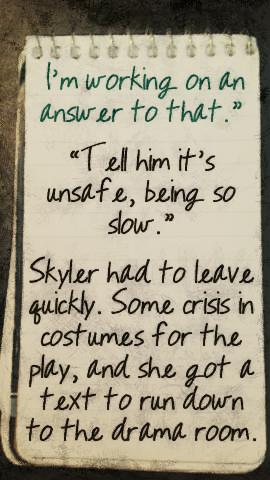 I'm working on an
answer to that."
"Tell him it's
unsafe, being so
slow."
Skyler had to leave
quickly. Some crisis in
costumes for the
play, and she got a
text to run down
to the drama room.